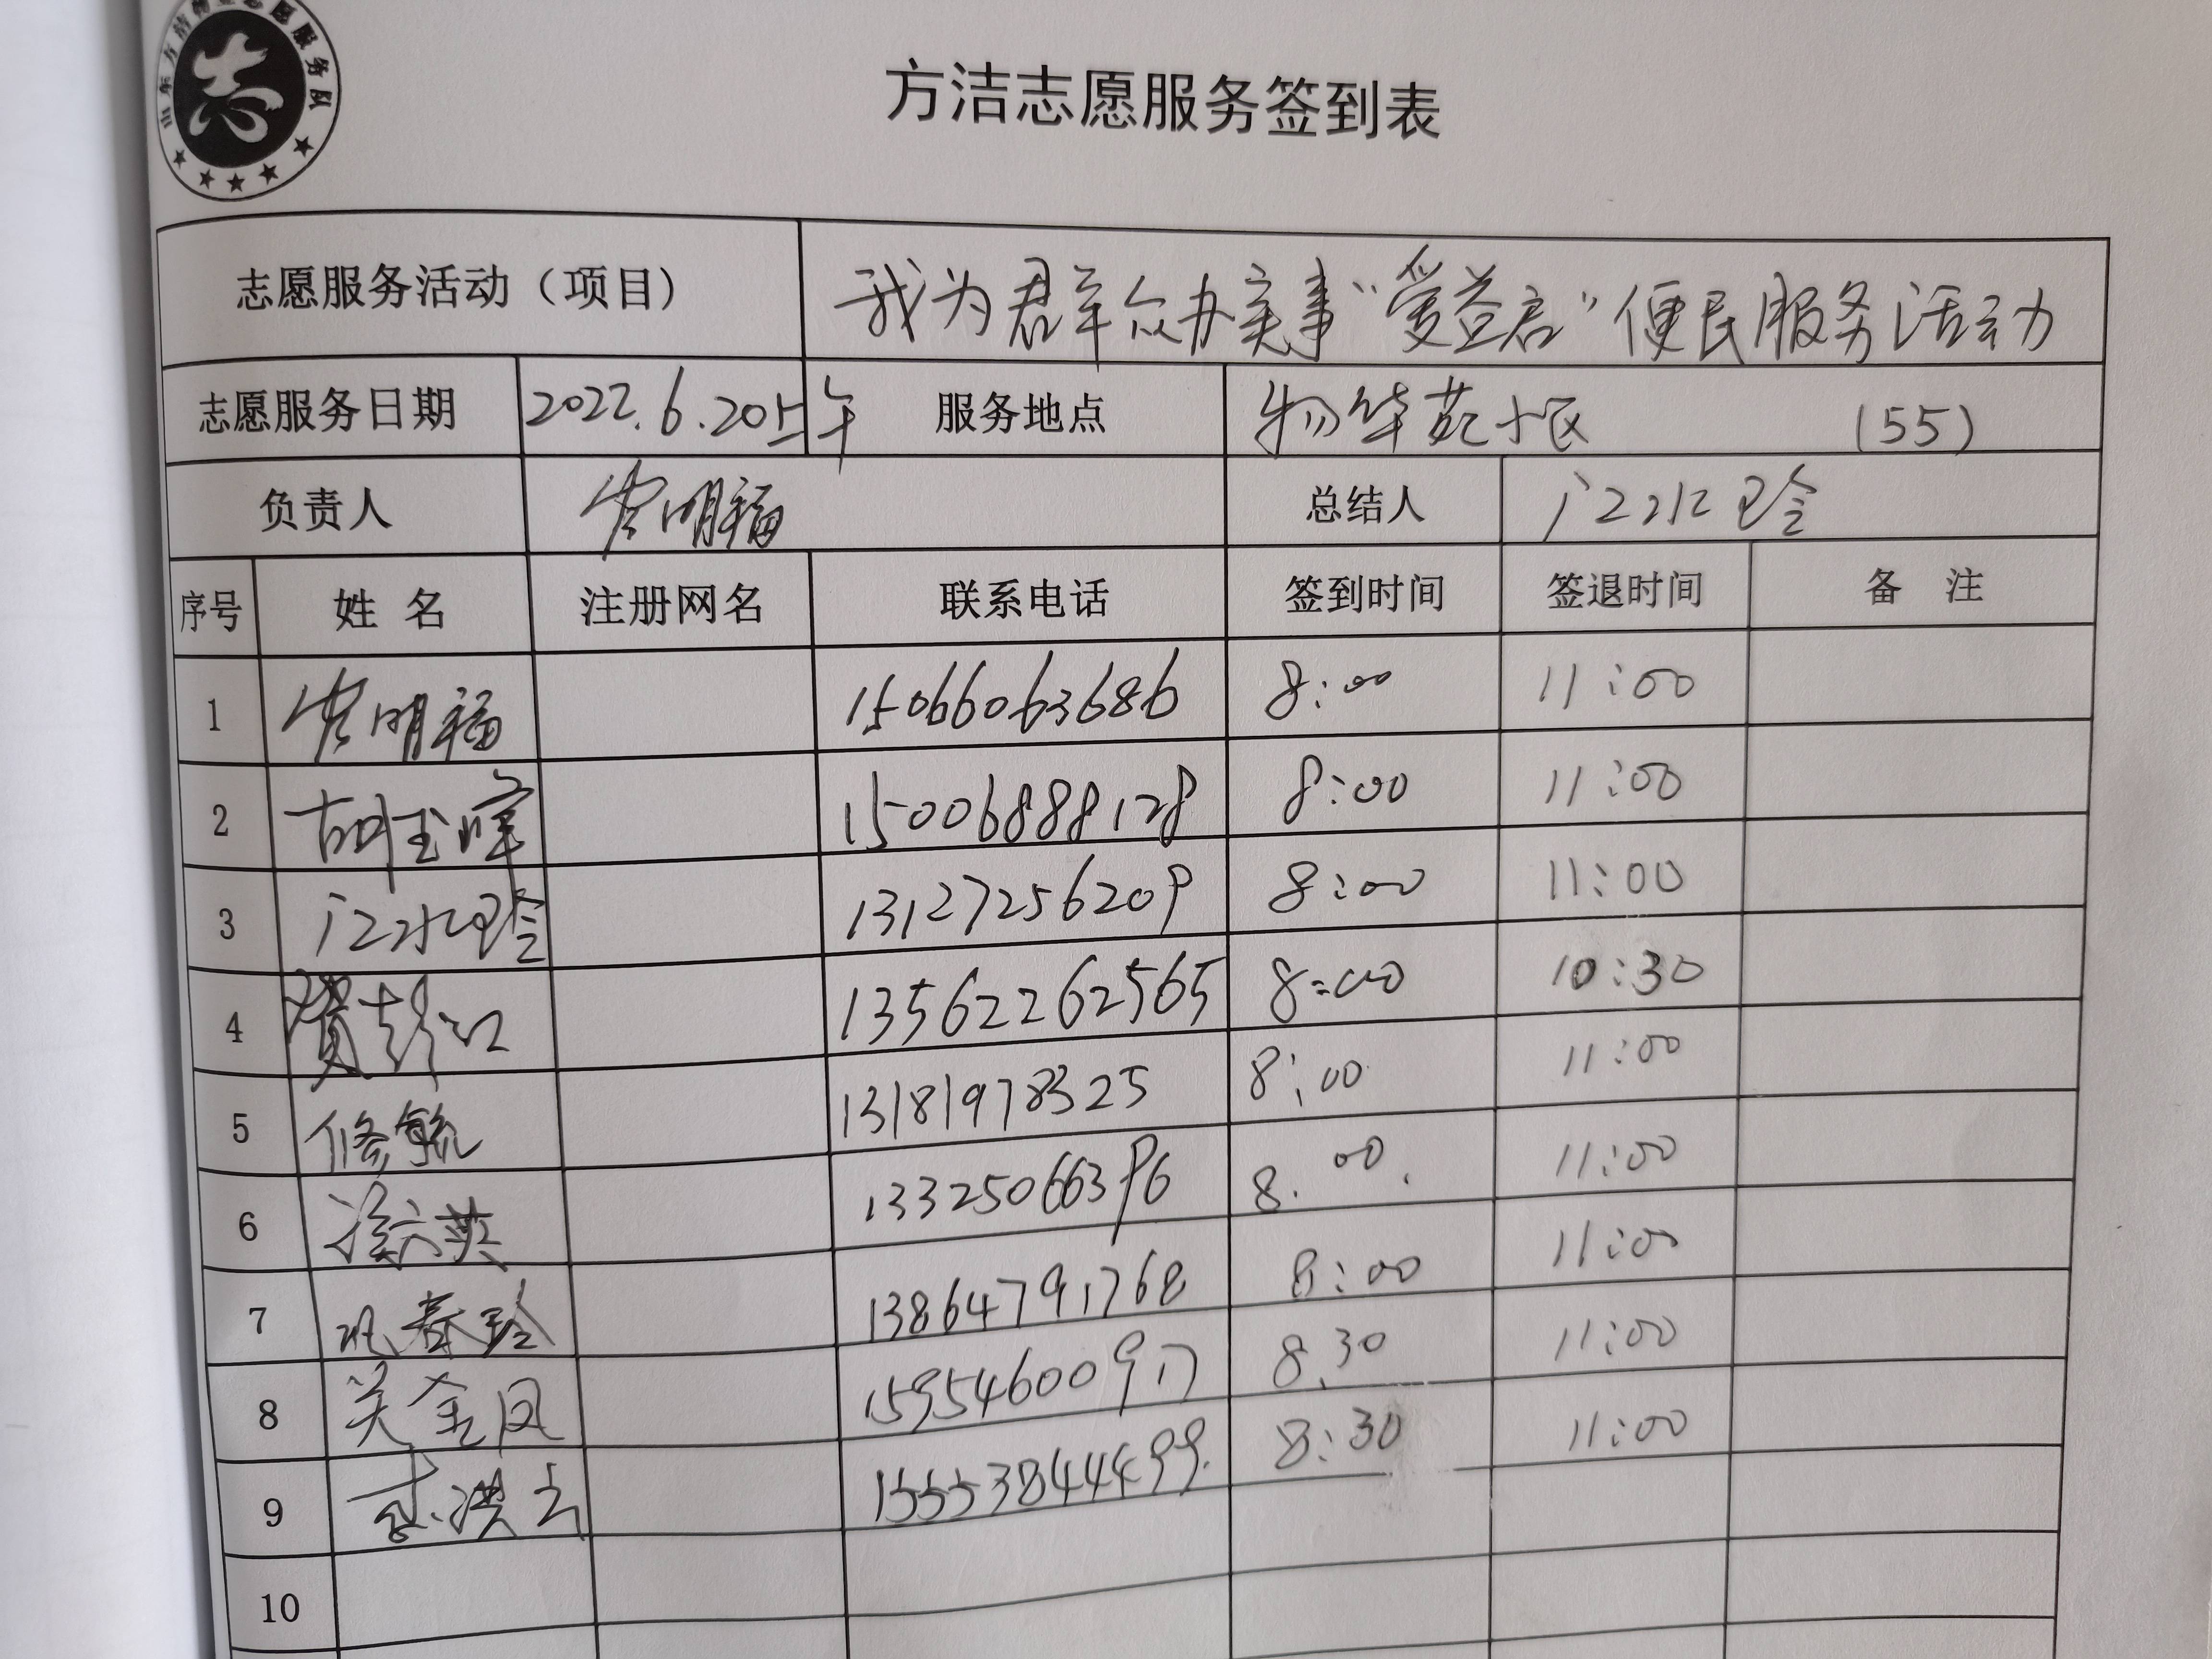 志
方洁志愿服务签到表
志愿服务活动（项目） 我为群众办实事“爱益启”便民服务活动
志愿服务日期 2022.6.20上午 服务地点 物华苑小区 (55)
负责人 明福 总结人 江水玲
序号 姓名 注册网名 联系电话 签到时间 签退时间 备注
1 明福 15066063686 8:00 11:00
2 胡玉峰 15006888128 8:00 11:00
3 江水玲 13127256209 8:00 11:00
4 13562262565 8:00 10:30
5 修毓 13181978325 8:00 11:00
6 徐六英 13325066396 8.00. 11:00
7 巩春玲 13864791768 8:00 11:00
8 关金凤 8.30 11:00
9 洪云 8:30 11:00
10